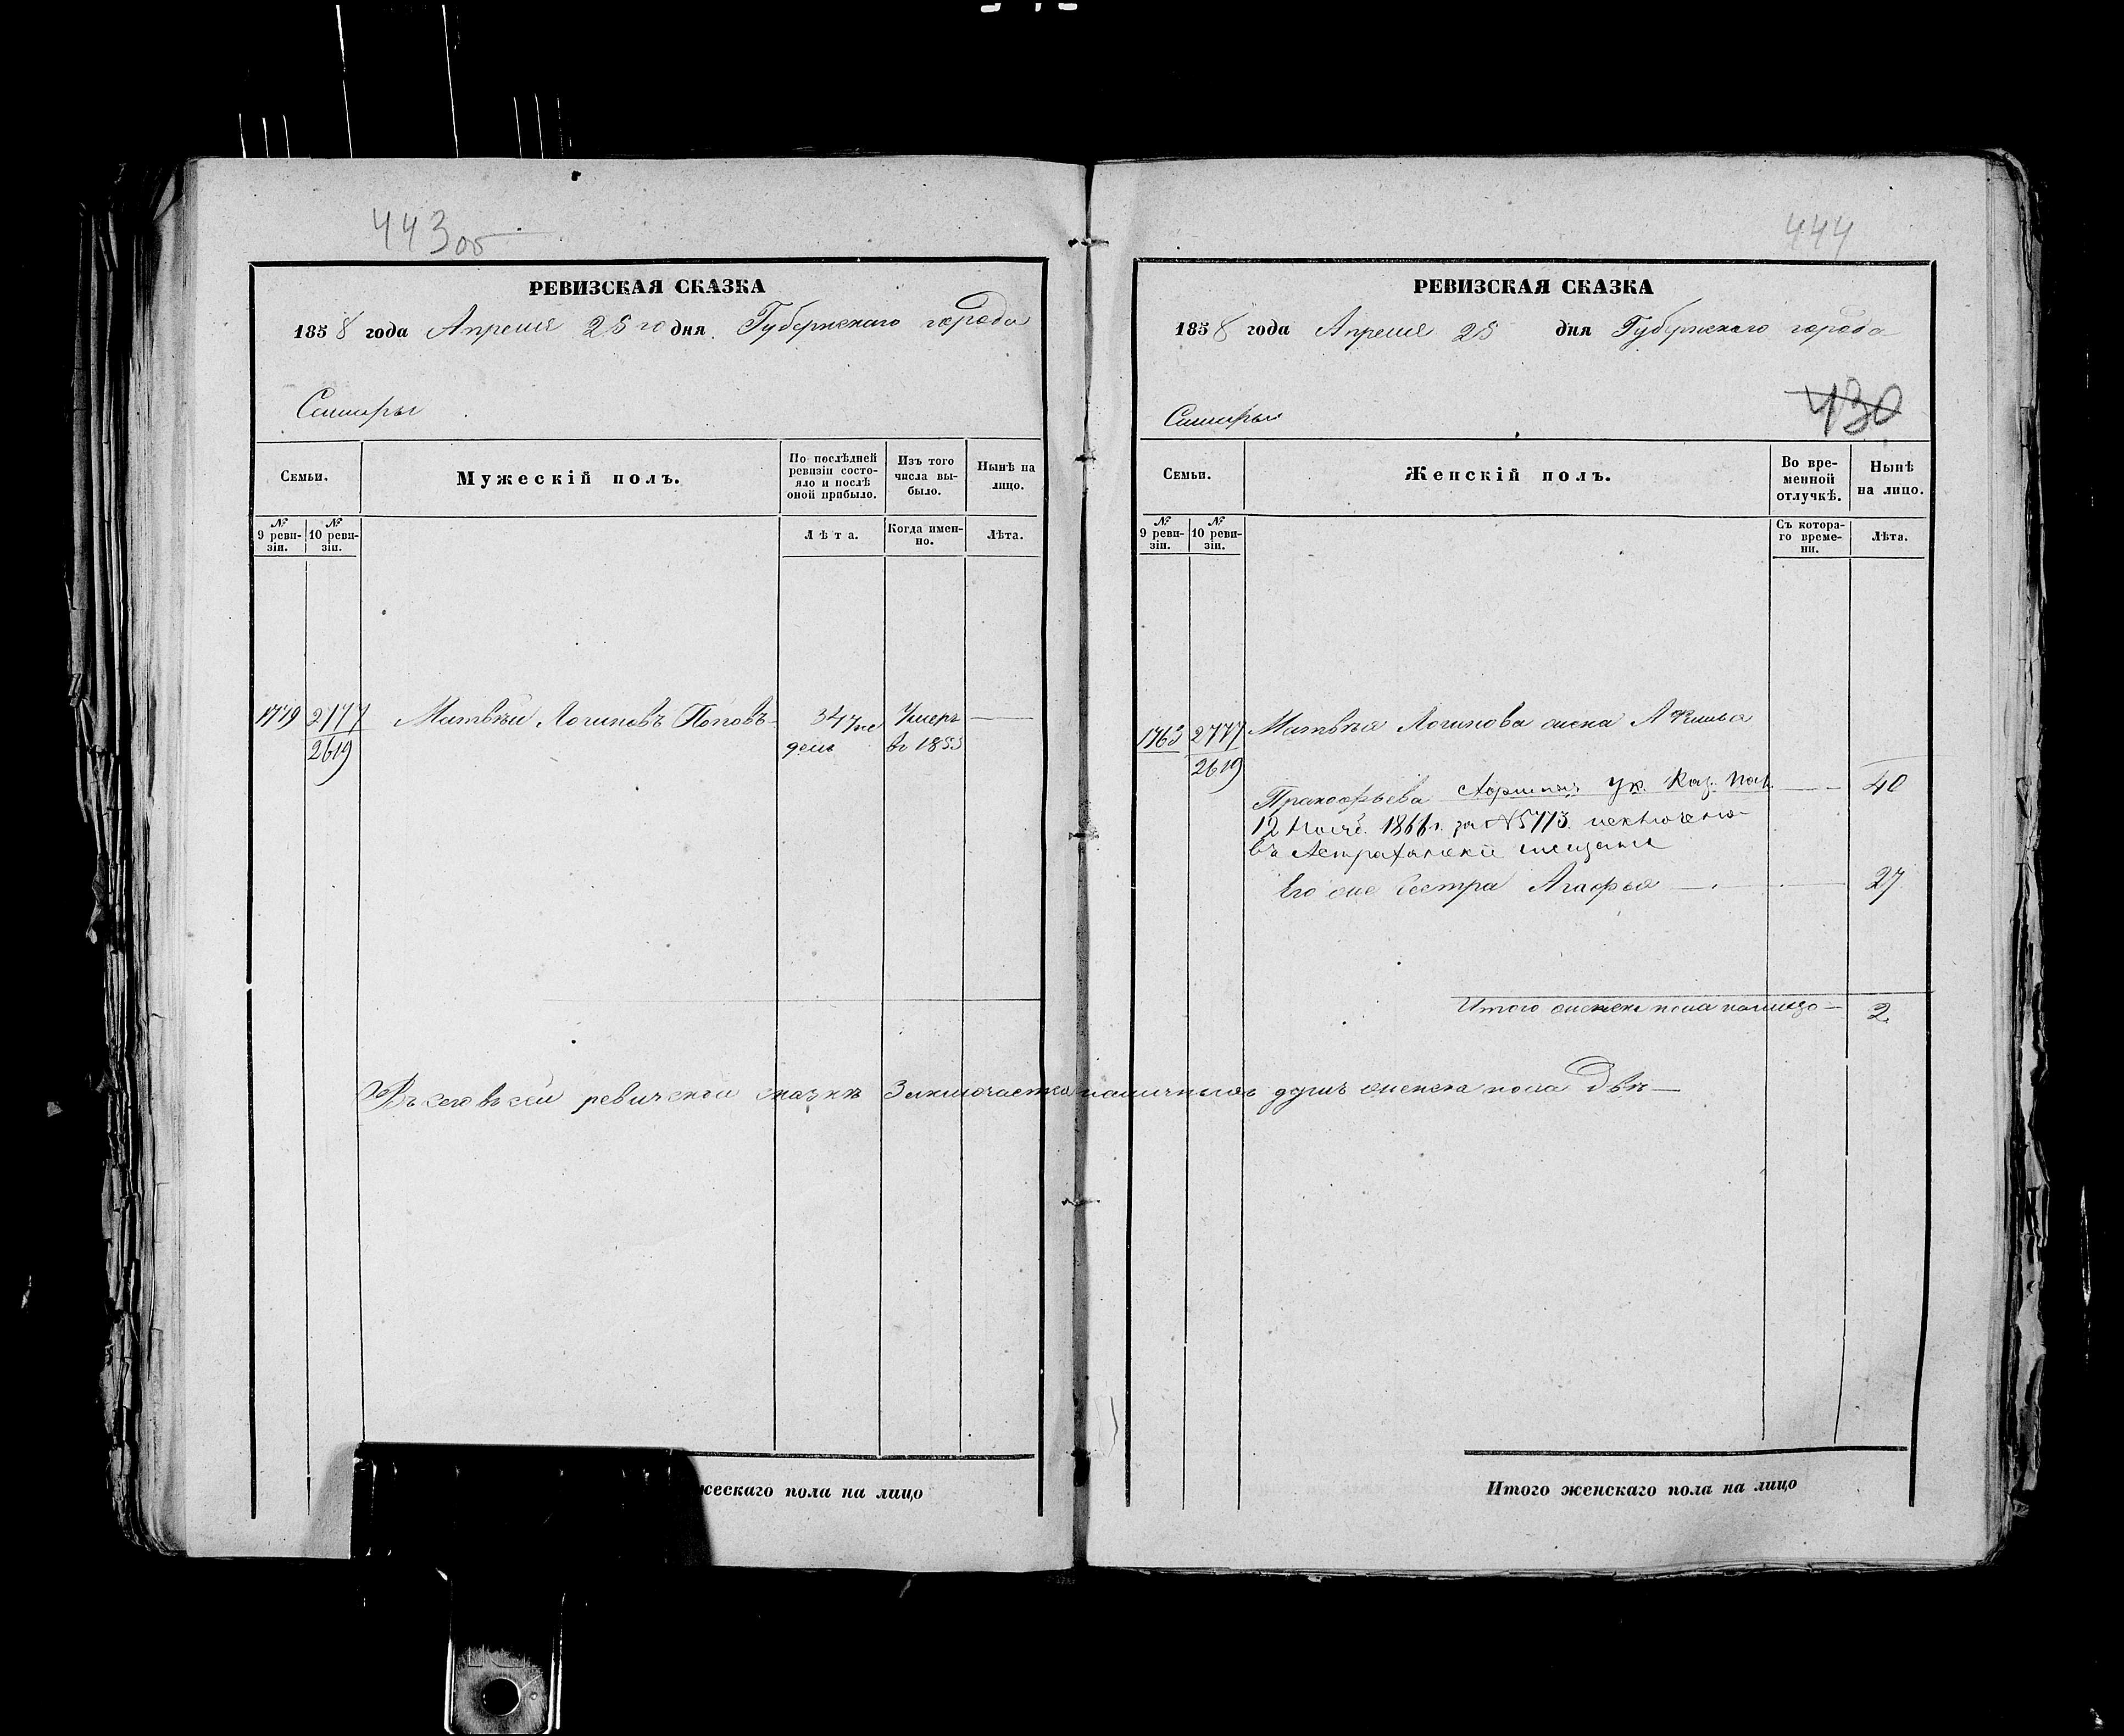 443 об
РЕВИЗСКАЯ СКАЗКА
1858 года Апреля 28 го дня Губернскаго города
Самары
Семьи.
Мужескій полъ.
По послѣдней ревизіи состояло и послѣ оной прибыло.
Изъ того числа выбыло.
Нынѣ на лицо.
№ 9 ревизіи.
№ 10 ревизіи.
Лѣта.
Когда именно.
Лѣта.
1779 2777 Матвѣй Логиновъ Поповъ 34 Умеръ
2619 въ 1853
Въ сей ревизской сказкѣ Заключается наличныхъ душъ женска пола Двѣ
жескаго пола на лицо
444
РЕВИЗСКАЯ СКАЗКА
1858 года Апреля 28 дня Губернскаго города
Самары
430
Семьи.
Женскій полъ.
Во временной отлучкѣ.
Нынѣ на лицо.
№ 9 ревизіи.
№ 10 ревизіи.
Съ котораго времени.
Лѣта.
1763 2777 Матвѣя Логинова жена
2619
Пракофьева Ук. Каз. Пал. 40
12 1866 г. за № 5773 исключена
въ Астраханскіе мещане
Его же Сестра Агафья 27
Итого женска пола налицо 2
Итого женскаго пола на лицо